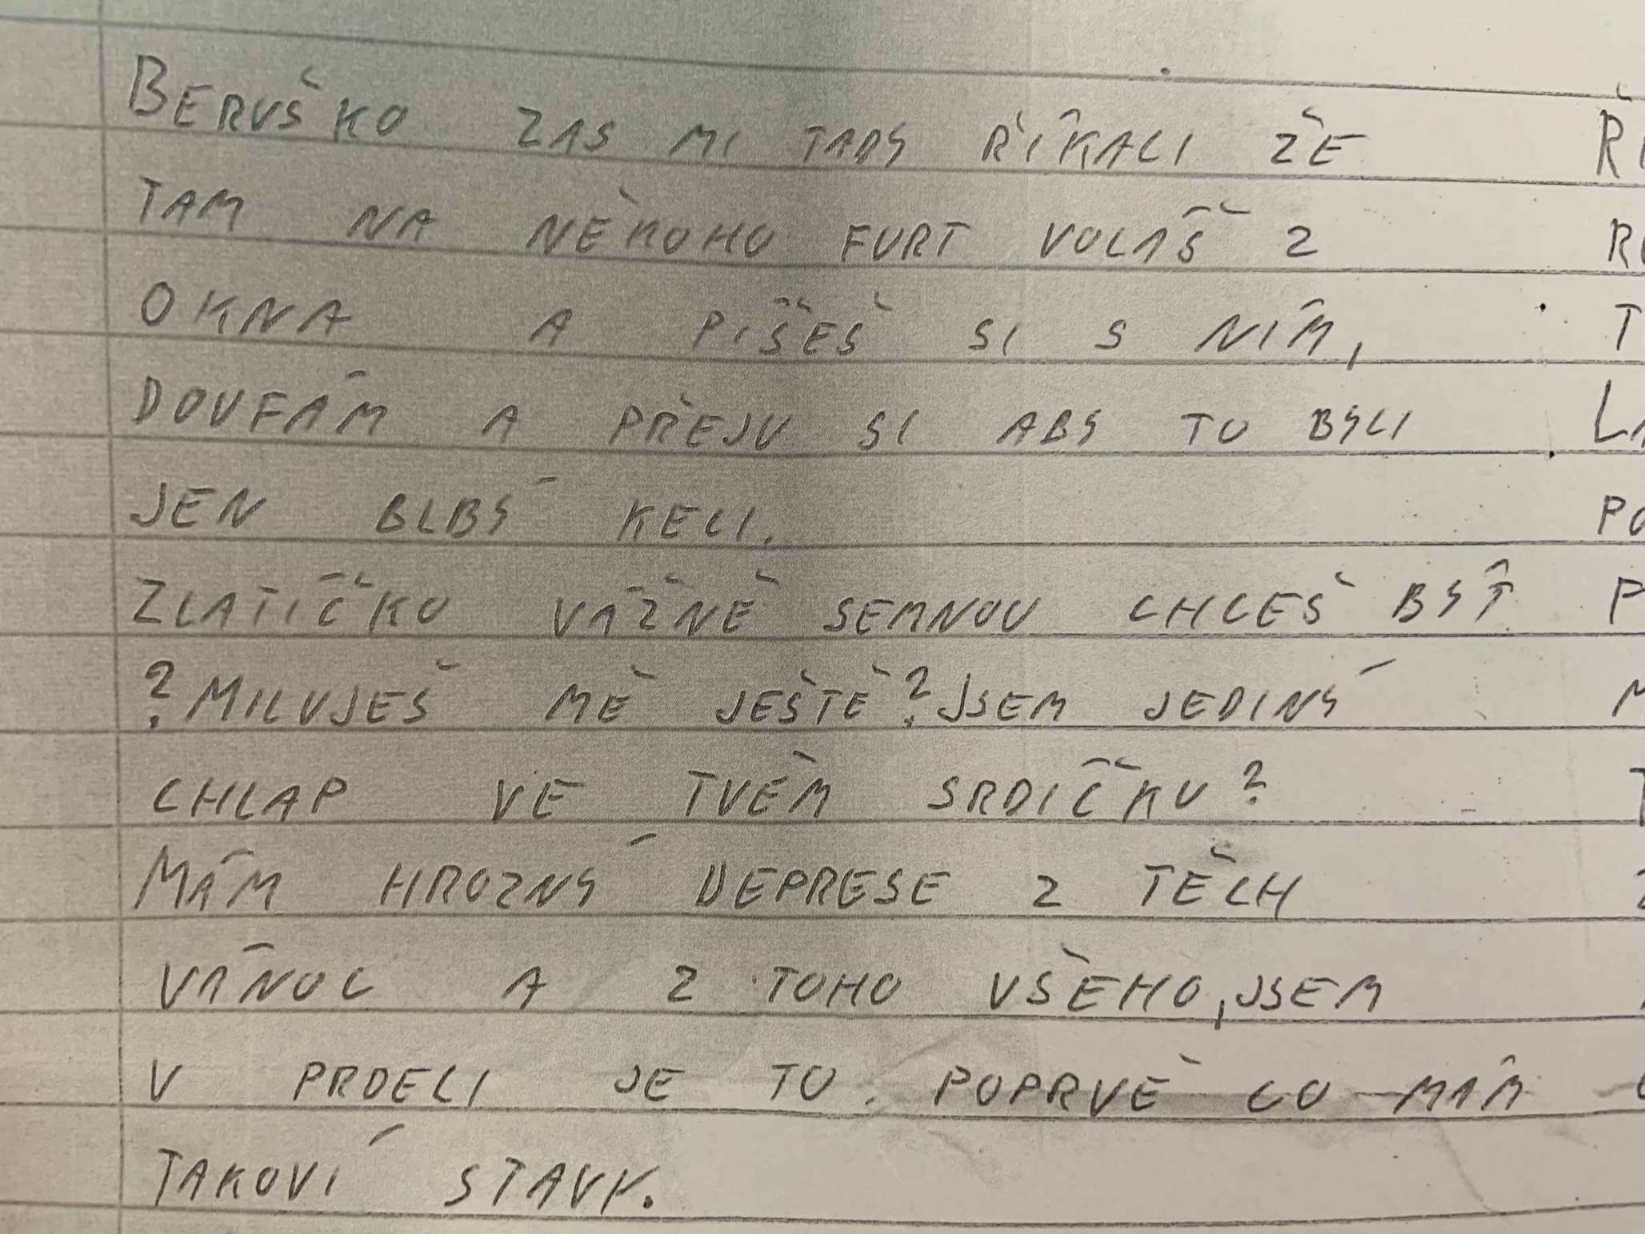 BERUŠKO ZAS MI TADY ŘÍKALI ŽE
TAM NA NĚKOHO FURT VOLÁŠ Z
OKNA A PÍŠEŠ SI S NÍM,
DOUFÁM A PŘEJU SI ABY TO BYLI
JEN BLBÝ KECI.
ZLATÍČKO VÁŽNĚ SEMNOU CHCEŠ BÝT
? MILUJEŠ MĚ JEŠTĚ? JSEM JEDINÝ
CHLAP VE TVÉM SRDÍČKU?
MÁM HROZNÝ DEPRESE Z TĚCH
VÁNOC A Z TOHO VŠEHO, JSEM
V PRDELI JE TO POPRVÉ CO MÁM
TAKOVÍ STAVY.